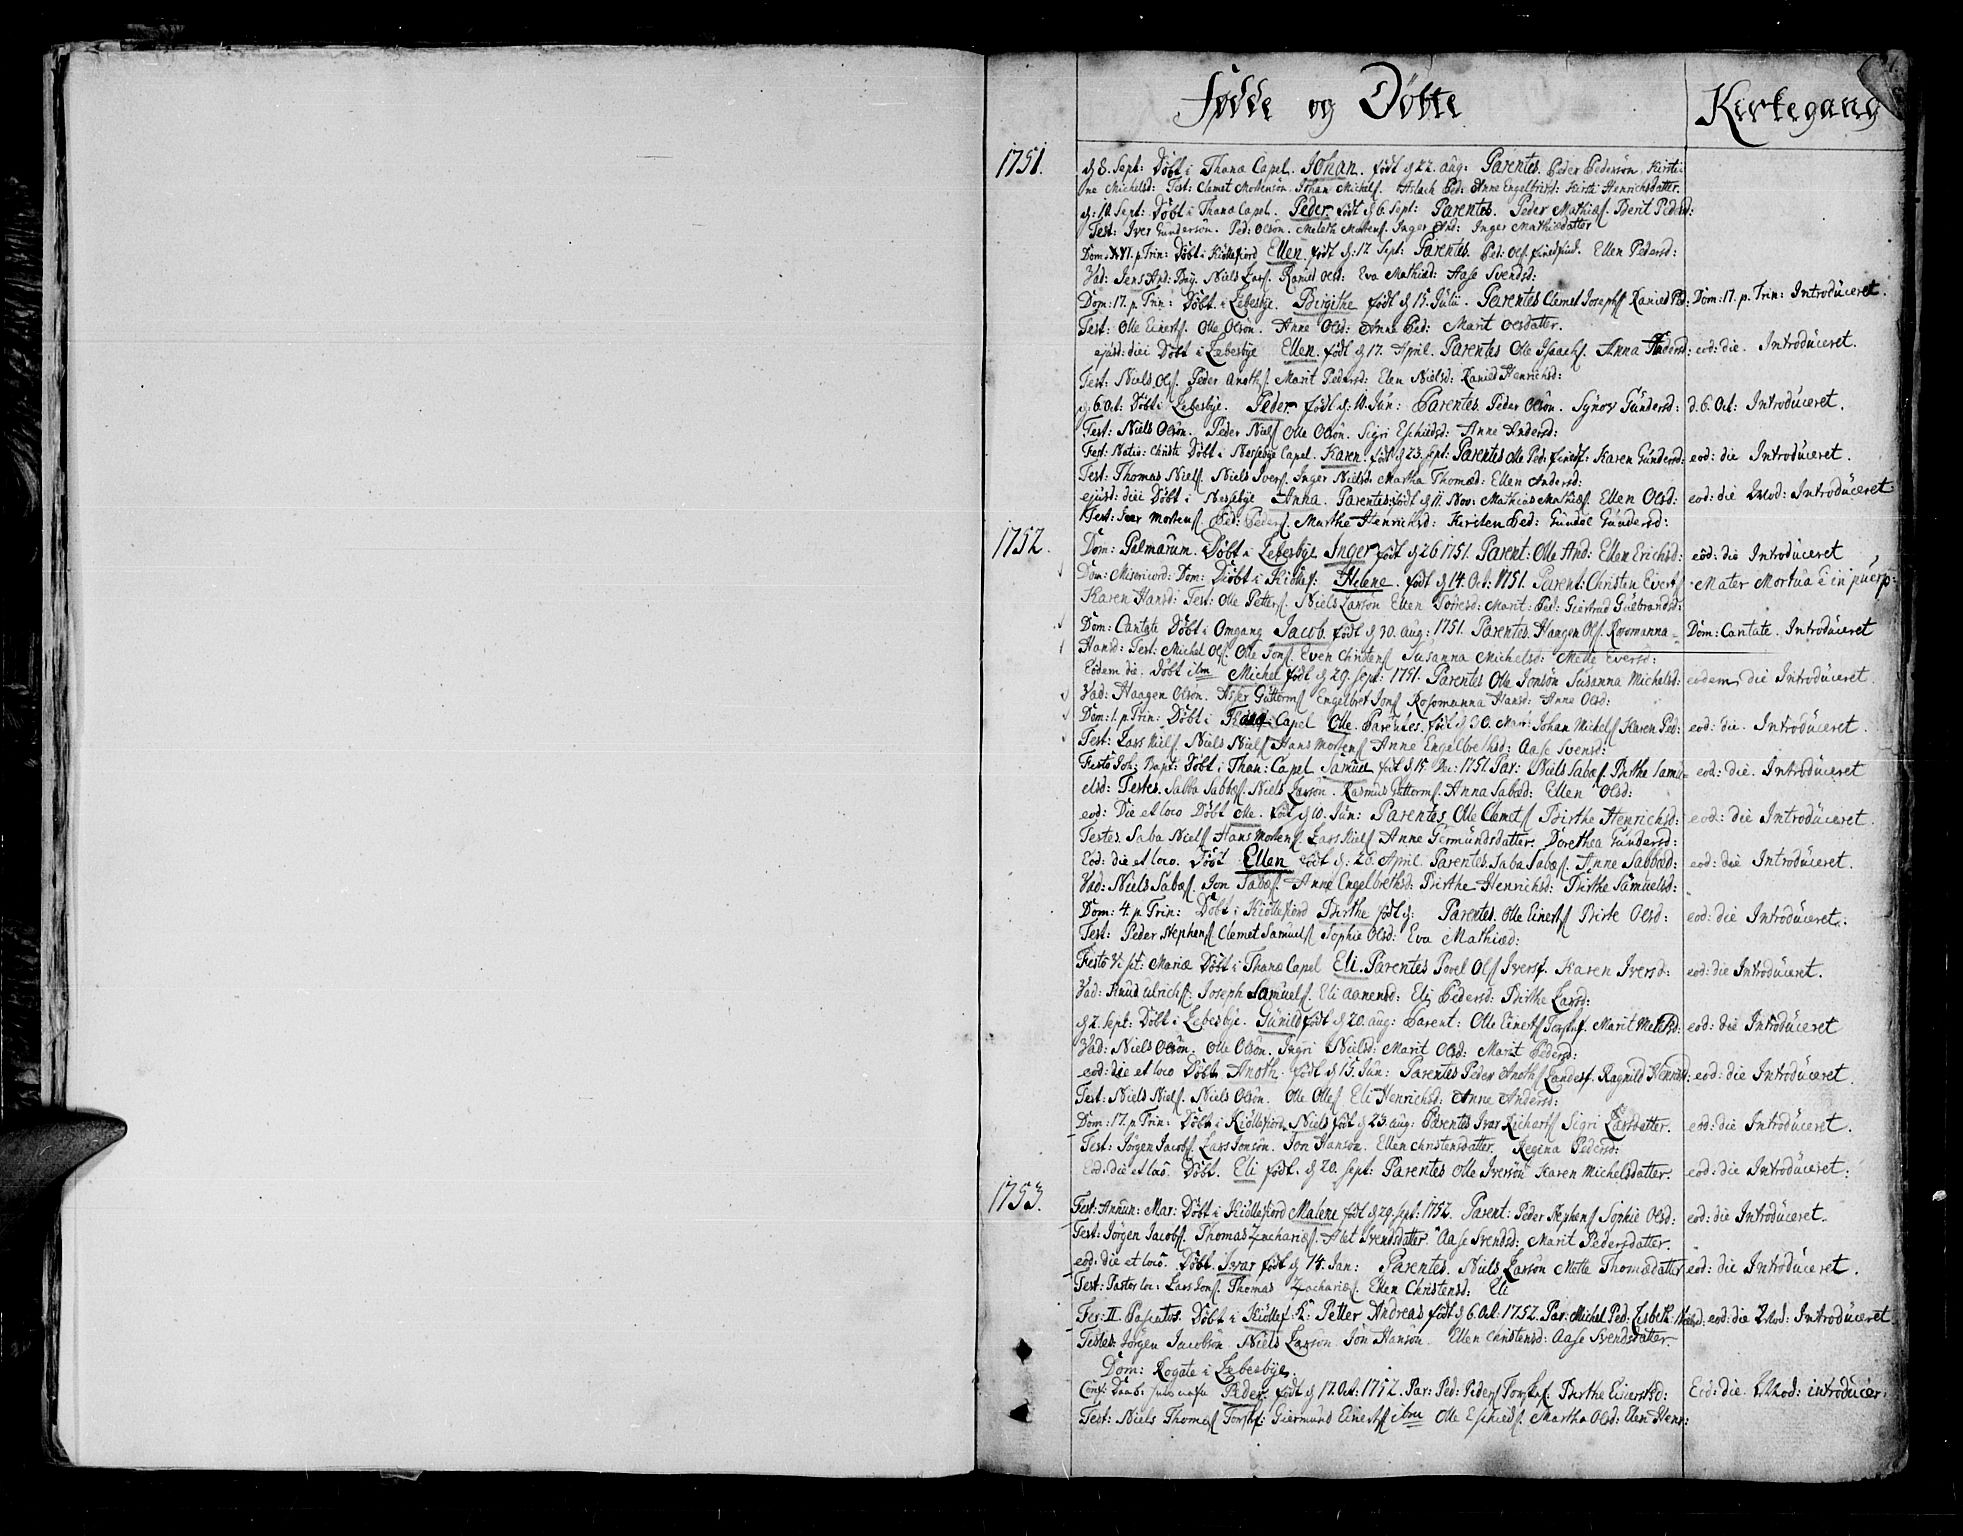 Fødde og Døbte
Kirkegang
1751.
d 8. Sept: Døbt i Thanæ Capel. Johan. født d 22. aug: Parentes. Peder Pedersøn. Kirsti-
ne Michelsd: Test: Clemet Mortensøn. Johan Michels. Aslach Ped: Anne Engelbrird: Kirsti Henrichsdatter.
Sept: Døbt i Thanæ Capel. Peder født d 6. Sept: Parentes. Peder Mathiæs. Berit Pedersd:
Test: Iver Gundersøn. Ped: Olsøn. Meleth Mortens. Inger And: Inger Mathiædatter
Dom: XVI. p. Trin: Døbt i Kiøllefiord Ellen. født d: 17. Sept: Parentes. Ped: Ols. Ellen Pedersd:
Vad: Jens And: Niels Lars. Raniel Olsd: Eva Mathiæd: Aase Svendsd:
Dom: 17. p. Trin: Døbt i Lebesbye. Birgithe født d 15. Julii. Parentes Clemet Josephs Ranied Ped: Dom: 17. p. Trin: Introduceret.
Test: Olle Einers. Olle Olsøn. Anne Olsd: Anne Ped: Marit Olsdatter.
ejusd: diei Døbt i Lebesbye Ellen. født d 17. April. Parentes Olle Isaachs. Anna Andersd: eod: die. Introduceret.
Test: Niels Ols. Peder Anoths. Marit Pedersd: Elen Nielsd: Ranied Henrichsd:
d: 6. Oct: Døbt i Lebesbye. Peder. født d: 10. Jun: Parentes. Peder Olsøn. Synov Gundersd: d. 6. Oct: Introduceret.
Test: Niels Olsøn. Peder Niels Olle Olsøn. Sigri Eschildsd: Anne Andersd:
Fest: Nativ: Christi Døbt i Nessebye Capel. Karen. født d 23. Sept: Parentes Olle Ped: Karen Gundersd: eod: die Introduceret.
Test: Thomas Niels. Niels Ivers. Inger Nielsd: Martha Thomæd: Ellen Andersd:
ejusd: diei Døbt i Nessebye Anna. Parentes: født d 11. Nov: Mathias Mathiæs. Ellen Olsd: eod: die Introduceret
Test: Iver Mortens. Ped: Peders. Marthe Henrichsd: Kirsten Ped: Gundel Gundersd:
1752.
Dom: Palmarum. Døbt i Lebesbye Inger født d 26 1751. Parent: Olle And: Ellen Erichsd: eod: die Introduceret
Dom: Misericord: Dom: Døbt i Kiøllef: Helene. født d 14. Oct: 1751. Parent: Christen Evers Mater Mortua è in puerp:
Karen Hansd: Test: Olle Petters. Niels Larsøn Ellen Torresd: Marit: Ped: Giertrud Gulbrandsd:
Dom: Cantate Døbt i Omgang Jacob. født d 30. aug: 1751. Parentes. Haagen Ols. Rosomanna Dom: Cantate. Introduceret
Hansd: Test: Michel Ols. Olle Jons. Even Christens Susanna Michelsd: Mette Eversd:
Eodem die. Døbt ibm Michel født d 29. Sept: 1751. Parentes Olle Jonsøn Susanna Michelsd: eodem die Introduceret.
Vad: Haagen Olsøn. Asser Guttorms Engelbret Jons Rosomunna Hansd: Anne Olsd:
Dom: 1. p. Trin: Døbt i Than: Capel Olle. Parentes. født d 30. Mar: Johan Michels Karen Ped: eod: die. Introduceret.
Test: Lars Niels. Niels Niels Hans Mortens Anne Engelbrethsd: Aase Svensd:
Festo Joh: Bapt: Døbt i Than: Capel Samuel født d 15 Dec: 1751. Par: Niels Sabæs. Birthe Samu- eod: die. Introduceret
elsd: Testes. Sabba Sabbæs. Niels Larsøn. Rasmus Guttorms. Anna Sabæd: Ellen Olsd:
eod: Die et loco Døbt Olle. født d 10. Jun: Parentes Olle Clemets Birthe Henrichsd: eod: die Introduceret.
Testes. Saba Niels Hans Mortens Lars Niels Anne Germundsdatter. Dorethea Gundersd:
Eod: die et loco. Døbt Ellen født d: 26. April. Parentes. Saba Sabæs. Anne Sabbæd: eod: die Introduceret.
Vad: Niels Sabæs. Jon Sabæs. Anne Engelbrethsd: Birthe Henrichsd: Birthe Samuelsd:
Dom: 4. p. Trin: Døbt i Kiøllefiord Birthe født d: Parentes. Olle Einers Birte Olsd: eod: die Introduceret.
Test: Peder Stephens Clemet Samuels Sophie Olsd: Eva Mathiæd:
Festo Visit: Mariæ Døbt i Thanæ Capel Eli. Parentes Povel Ols Ivers. Karen Iversd: eod: die Introduceret.
Vad: Knud Ulrichs: Joseph Samuels. Eli Aanensd: Eli Pedersd: Birthe Larsd:
d 2. Sept: Døbt i Lebesbye. Gunild født d 20. aug: Parent: Olle Einers Torskf. Marit eod: die Introduceret
Vad: Niels Olsøn. Olle Olsøn. Ingri Nielsd: Marit Olsd: Marit Pedersd:
eod: die et loco Døbt Anoth. født d 15. Jun: Parentes Peder Anoths Landsf. Ragnild Henrichsd: eod: die Introduceret.
Test: Niels Niels. Niels Olsøn. Olle Olles Eli Henrichsd: Anne Andersd:
Dom: 17. p. Trin: Døbt i Kiøllefiord Niels født d 23. aug: Parentes Ivar Richars Sigri Larsdatter. eod: die Introduceret.
Test: Jørgen Jacobs Lars Jonsøn. Jon Hansøn. Ellen Christensdatter Regina Pedersd:
Eod: die et loco. Døbt. Eli født. d 20. Sept: Parentes Olle Iversøn Karen Michelsdatter. eod: die Introduceret.
1753.
Fest: Annun: Mar: Døbt i Kiøllefiord Malene født d 29. Sept: 1752. Parent: Peder Stephens Sophie Olsd: eod: die Introduceret.
Test: Jørgen Jacobs. Thomas Zachariæs. Alet Svendsdatter. Aase Svendsd: Marit Pedersdatter.
eod: die et loco. Døbt. Ivar født d 14. Jan: Parentes. Niels Larsøn Mette Thomædatter eod: die Introduceret.
Test: Pastor loc: Lars Jons. Thomas Zachariæs. Ellen Christensd: Eli
Fer: II. Paschatos. Døbt i Kiøllef: Petter Andreas født d 6. Oct: 1752. Par: Michel Ped: Lisbeth eod: die Introduceret
Testes: Jørgen Jacobsøn. Niels Larsøn Jon Hansøn. Ellen Christensd: Aase Svendsdatter.
Dom: Rogate i Lebesbye
Conf: Daab: Peder født d 17. Oct: 1752. Par: Ped: Peders Torskf. Birthe Einersd: Eod: die introducer:
Test: Niels Thomes Torskf: Giermund Einers ibm Olle Eschilds. Martha Olsd: Elen Henr: